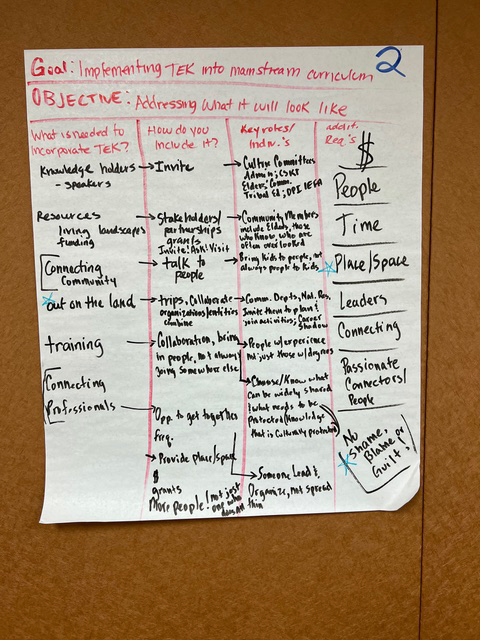 2
Goal: Implementing TEK into mainstream curriculum
OBJECTIVE: Addressing what it will look like
What is needed to
incorporate TEK?
Knowledge holders
- speakers
Resources
living landscapes
funding
Connecting
Community
out on the land
training
Connecting
Professionals
How do you
include it?
Invite
Stakeholders/
partnerships
grants
Invite! Ask! Visit
talk to
people
trips, Collaborate
organizations/entities
combine
Collaboration, bring
in people, not always
going somewhere else
Opp. to get together
freq.
Provide place/space
$
grants
More people! not just
one who
does all thin
Key roles/
Indiv.'s
Culture Committees
Admin; CSKT
Elders; Comm.
Tribal Ed; OPI IEFA
Community Members
include Elders, those
who know, who are
often overlooked
Bring kids to people, not
always people to kids
Comm. Depts, Nat. Res.
Invite them to plan &
join activities; Career
Shadow
People w/experience
not just those w/degrees
Choose/Know what
can be widely shared
& what needs to be
Protected (Knowledge
that is culturally protected
Someone Lead &
Organize, not spread
addit.
Req's
$
People
Time
Place/Space
Leaders
Connecting
Passionate
Connectors/
People
No
shame,
Blame or
Guilt!